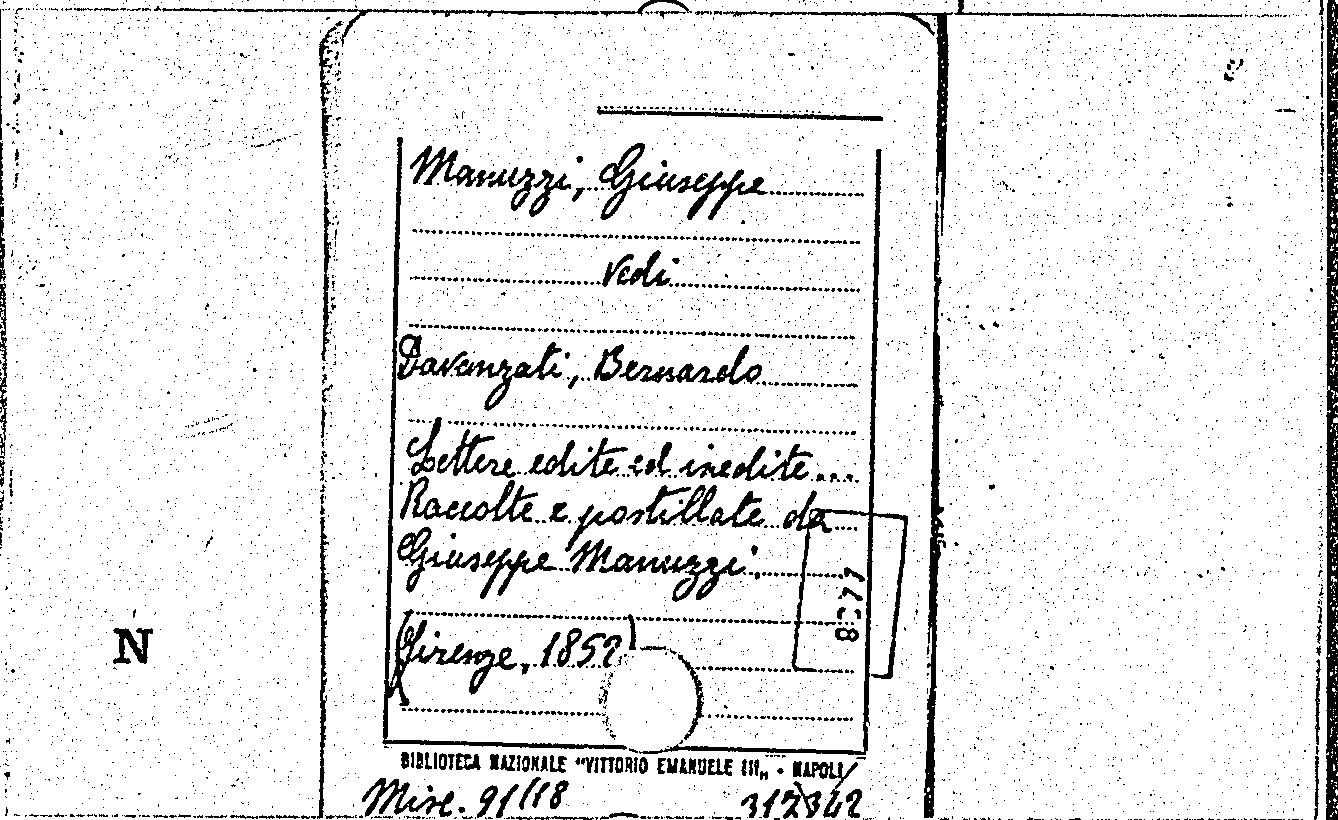 Manuzzi, Giuseppe
vedi
Davanzati, Bernardo
Lettere edite ed inedite...
Raccolte e postillate da
Giuseppe Manuzzi.
8377
(Firenze, 1852)
N
BIBLIOTECA NAZIONALE "VITTORIO EMANUELE III„ - NAPOLI
Misc. 91/18
312342